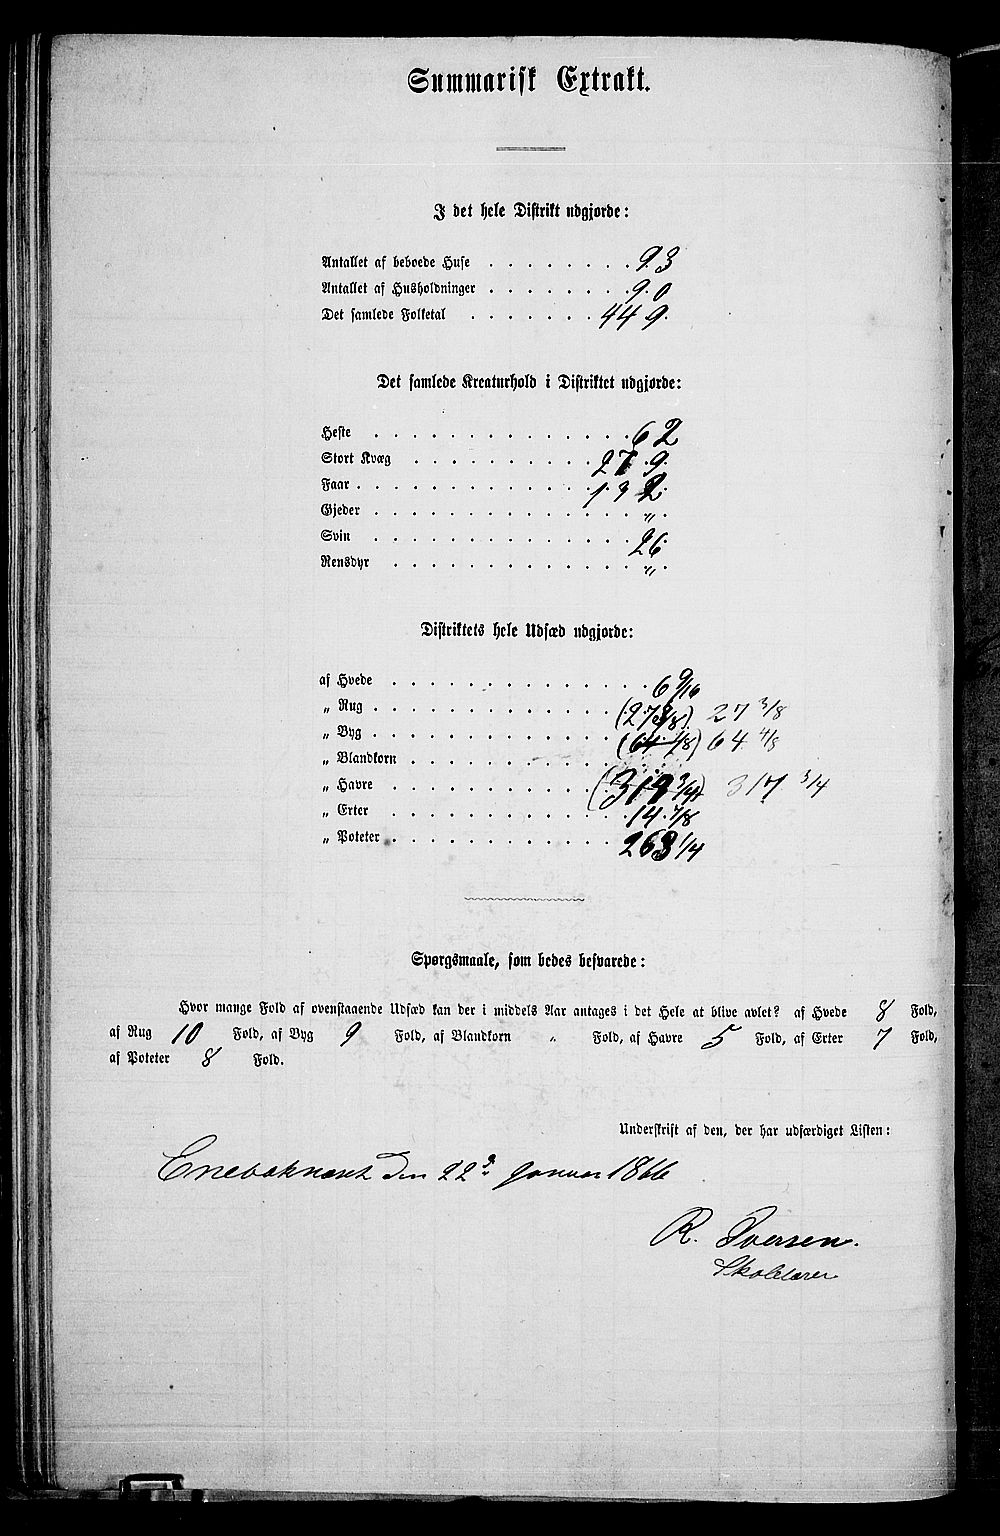 Summarisk Extrakt.
I det hele Distrikt udgjorde:
Antallet af beboede Huse . . . . . . . . 93
Antallet af Husholdninger . . . . . . . . 90
Det samlede Folketal . . . . . . . 449.
Det samlede Kreaturhold i Distriktet udgjorde:
Heste . . . . . . . . . . . . . . 62
Stort Kvæg . . . . . . . . . . . 279.
Faar . . . . . . . . . . . . . 132.
Gjeder . . . . . . . . . . . . . . "
Svin . . . . . . . . . . . . . . 26
Rensdyr . . . . . . . . . . . . . "
Distriktets hele Udsæd udgjorde:
af Hvede . . . . . . . . . . . . . 6 9/16
„ Rug . . . . . . . . . . . . . (27 3/8) 27 3/8
„ Byg . . . . . . . . . . . . . (64 4/8) 64 4/8
„ Blandkorn . . . . . . . . . . .
„ Havre . . . . . . . . . . . (317 3/4) 317 3/4
„ Erter . . . . . . . . . . . . 14 7/8
„ Poteter . . . . . . . . . . . 263 1/4
Spørgsmaale, som bedes besvarede:
Hvor mange Fold af ovenstaaende Udsæd kan der i middels Aar antages i det Hele at blive avlet? af Hvede 8 Fold,
af Rug 10 Fold, af Byg 9 Fold, af Blandkorn „ Fold, af Havre 5 Fold, af Erter 7 Fold,
af Poteter 8 Fold.
Underskrift af den, der har udfærdiget Listen:
den 22de Januar 1866
R. Iversen.
Skolelærer